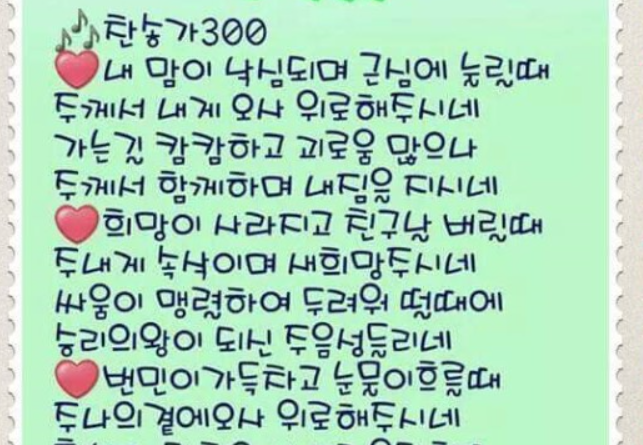 찬송가300
내 맘이 낙심되며 근심에 눌릴때
주께서 내게 오사 위로해주시네
가는길 캄캄하고 괴로움 많으나
주께서 함께하며 내짐을 지시네
희망이 사라지고 친구날 버릴때
주내게 속삭이며 새희망주시네
싸움이 맹렬하여 두려워 떨때에
승리의왕이 되신 주음성들리네
번민이가득차고 눈물이흐를때
주나의곁에오사 위로해주시네